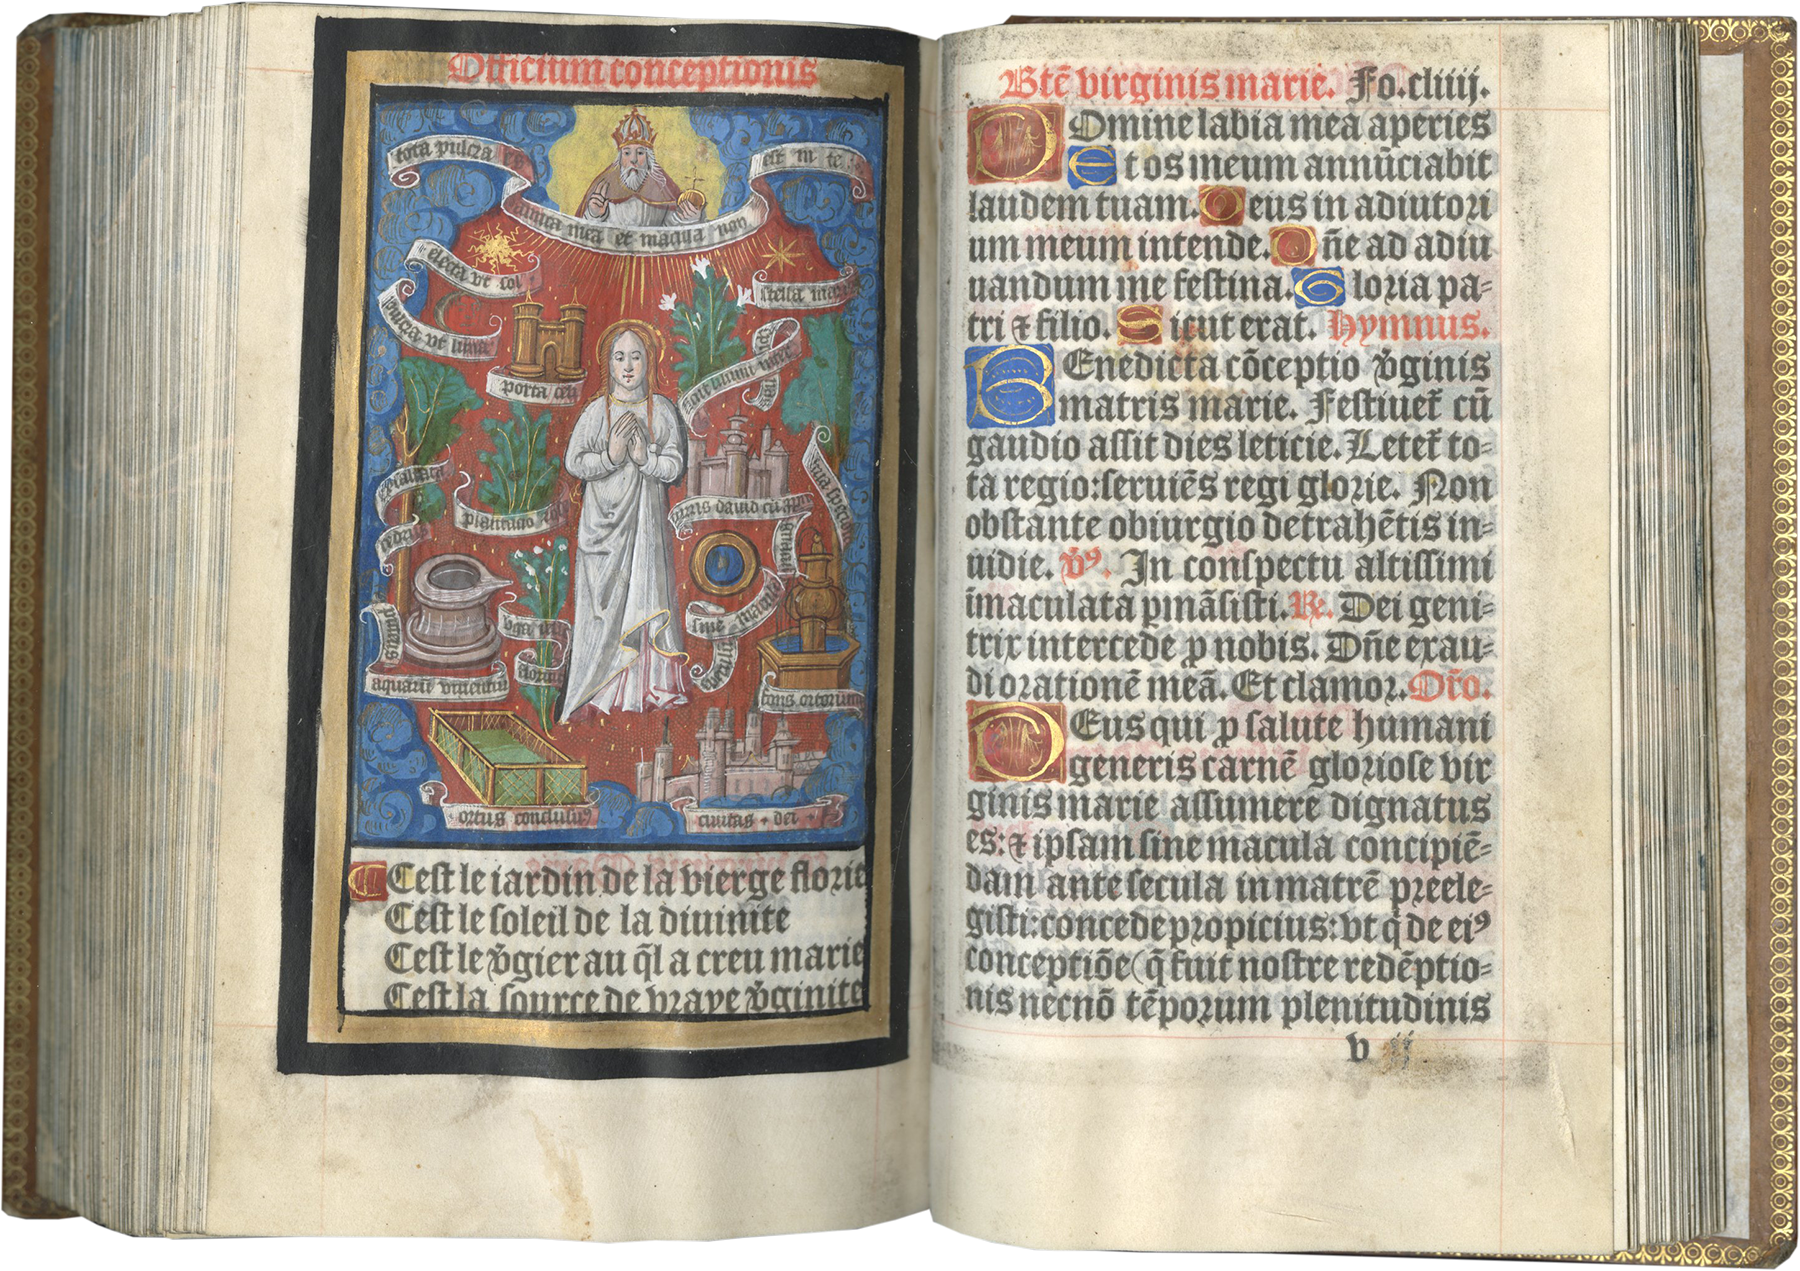 Officium conceptionis
tota pulcra es
amica mea et macula non
est in te
electa vt sol
pulcra vt luna
porta celi
stella maris
sicut lilium inter
spinas
exaltata
cedrus
plantacio rose
turris dauid cū
sine macula
speculū
puteus
aquarū viuentiū
v̄ga iesse
floruit
fons ortorum
ortus conclusus
ciuitas dei
Cest le iardin de la vierge florie
Cest le soleil de la diuinite
Cest le v̄gier au q̄l a creu marie
Cest la source de vraye v̄ginite
Btē virginis marie. Fo.cliiij.
DOmine labia mea aperies
Et os meum annūciabit
laudem tuam. Deus in adiutori
um meum intende. Dn̄e ad adiu
uandum me festina. Gloria pa-
tri & filio. Sicut erat. Hymnus.
BEnedicta cōceptio v̄ginis
matris marie. Festiuet̄ cū
gaudio assit dies leticie. Letet̄ to-
ta regio: seruiēs regi glorie. Non
obstante obiurgio detrahētis in-
uidie. v̄ꝰ. In conspectu altissimi
īmaculata ꝑmāsisti. ℟. Dei geni-
trix intercede ꝓ nobis. Dn̄e exau-
di orationē meā. Et clamor. Or̄o.
DEus qui ꝓ salute humani
generis carnē gloriose vir
ginis marie assumere dignatus
es: & ipsam sine macula concipiē-
dam ante secula in matrē preele-
gisti: concede propicius: vt q̄ de eiꝰ
conceptiōe (q̄ fuit nostre redēptio-
nis necnō tēporum plenitudinis
v ij